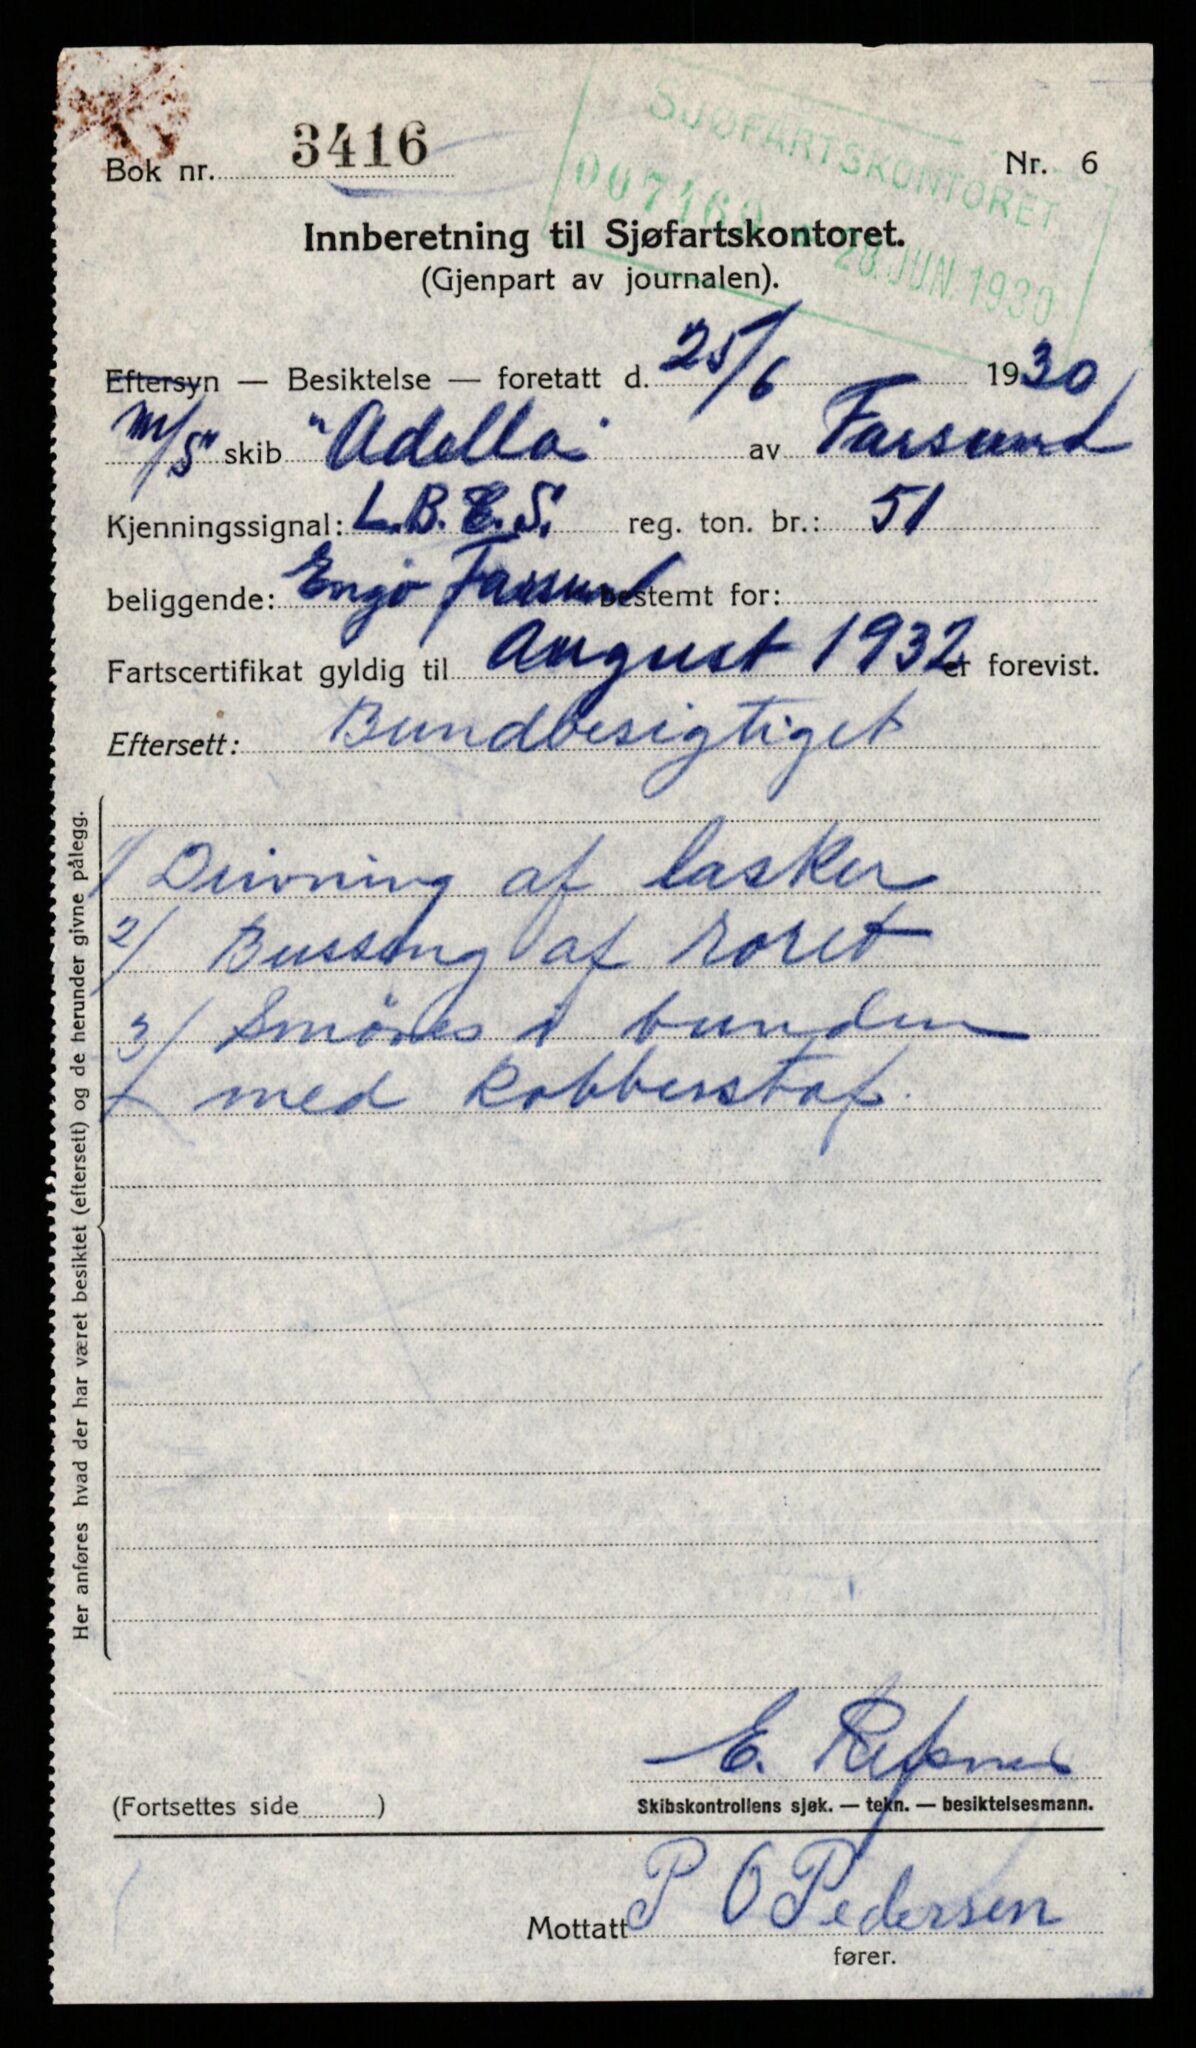 SJØFARTSKONTORET
28. JUN. 1930
Bok nr. 3416
Nr. 6
Innberetning til Sjøfartskontoret.
(Gjenpart av journalen).
Eftersyn — Besiktelse — foretatt d. 25/6 1930
M/S skib "Adella" av Farsund
Kjenningssignal: L.B.C.S. reg. ton. br.: 51
beliggende: Engø Farsund bestemt for:
Fartscertifikat gyldig til August 1932 er forevist.
Eftersett: Bundbesigtiget
Her anføres hvad der har været besiktet (eftersett) og de herunder givne pålegg.
1/ Drivning af lasker
2/ Bussing af roret
3/ Smøres i bunden
med kobberstof.
E. Refsnes
(Fortsettes side )
Skibskontrollens sjøk. — tekn. — besiktelsesmann.
Mottatt P O Pedersen
fører.